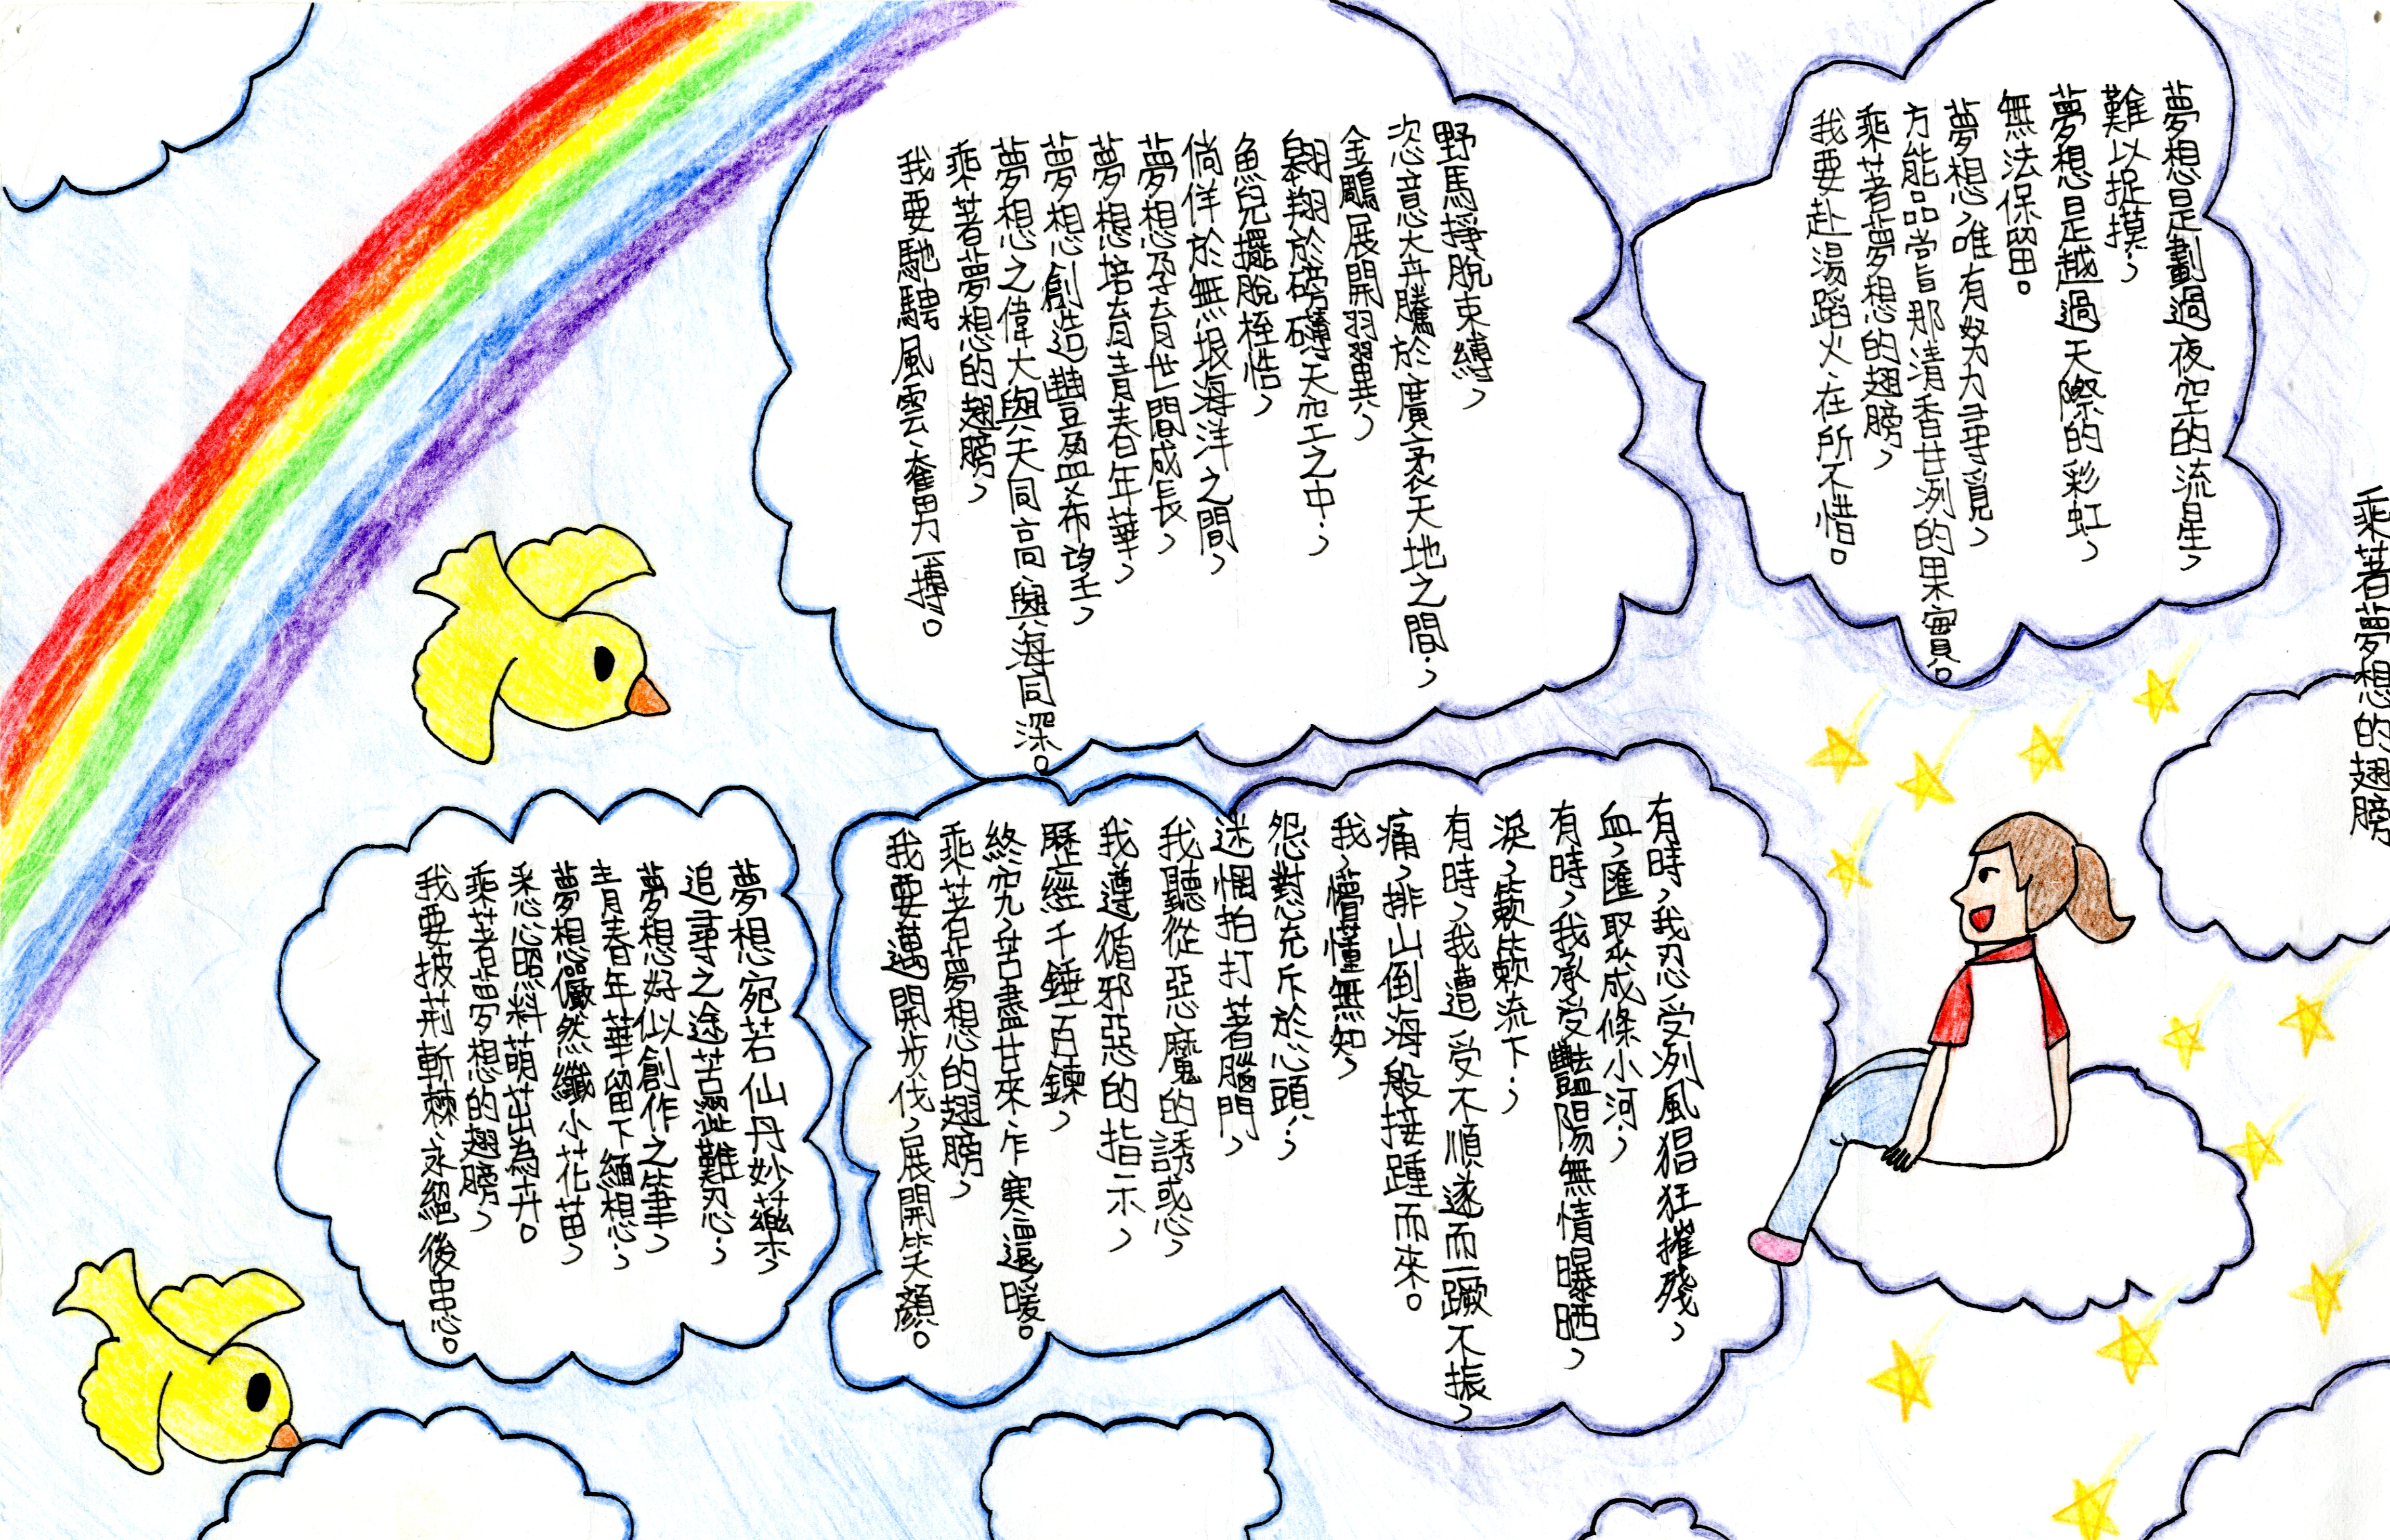 乘著夢想的翅膀
夢想是劃過夜空的流星，
難以捉摸；
夢想是越過天際的彩虹，
無法保留。
夢想，唯有努力尋覓，
方能品嘗那清香甘冽的果實。
乘著夢想的翅膀，
我要赴湯蹈火、在所不惜。
野馬掙脫束縛，
恣意大奔騰於廣袤天地之間；
金鵰展開羽翼，
翱翔於磅礴天空之中；
魚兒擺脫桎梏，
倘佯於無垠海洋之間，
夢想孕育世間成長，
夢想培育青春年華，
夢想創造豐盈希望，
夢想之偉大與天同高、與海同深。
乘著夢想的翅膀，
我要馳騁風雲、奮男一搏。
有時，我忍受冽風猖狂摧殘，
血，匯聚成條小河；
有時，我承受豔陽無情曝晒，
淚，簌簌流下；
有時，我遭受不順遂而一蹶不振，
痛，排山倒海般接踵而來。
我，懵懂無知，
怨懟充斥於心頭；
迷惘拍打著腦門，
我聽從惡魔的誘惑，
我遵循邪惡的指示，
歷經千錘百鍊，
終究，苦盡甘來、乍寒還暖。
乘著夢想的翅膀，
我要邁開步伐，展開笑顏。
夢想宛若仙丹妙藥，
追尋之途苦澀難忍；
夢想好似創作之筆，
青春年華留下緬想；
夢想儼然纖小花苗，
悉心照料萌茁為卉。
乘著夢想的翅膀，
我要披荊斬棘、永絕後患。